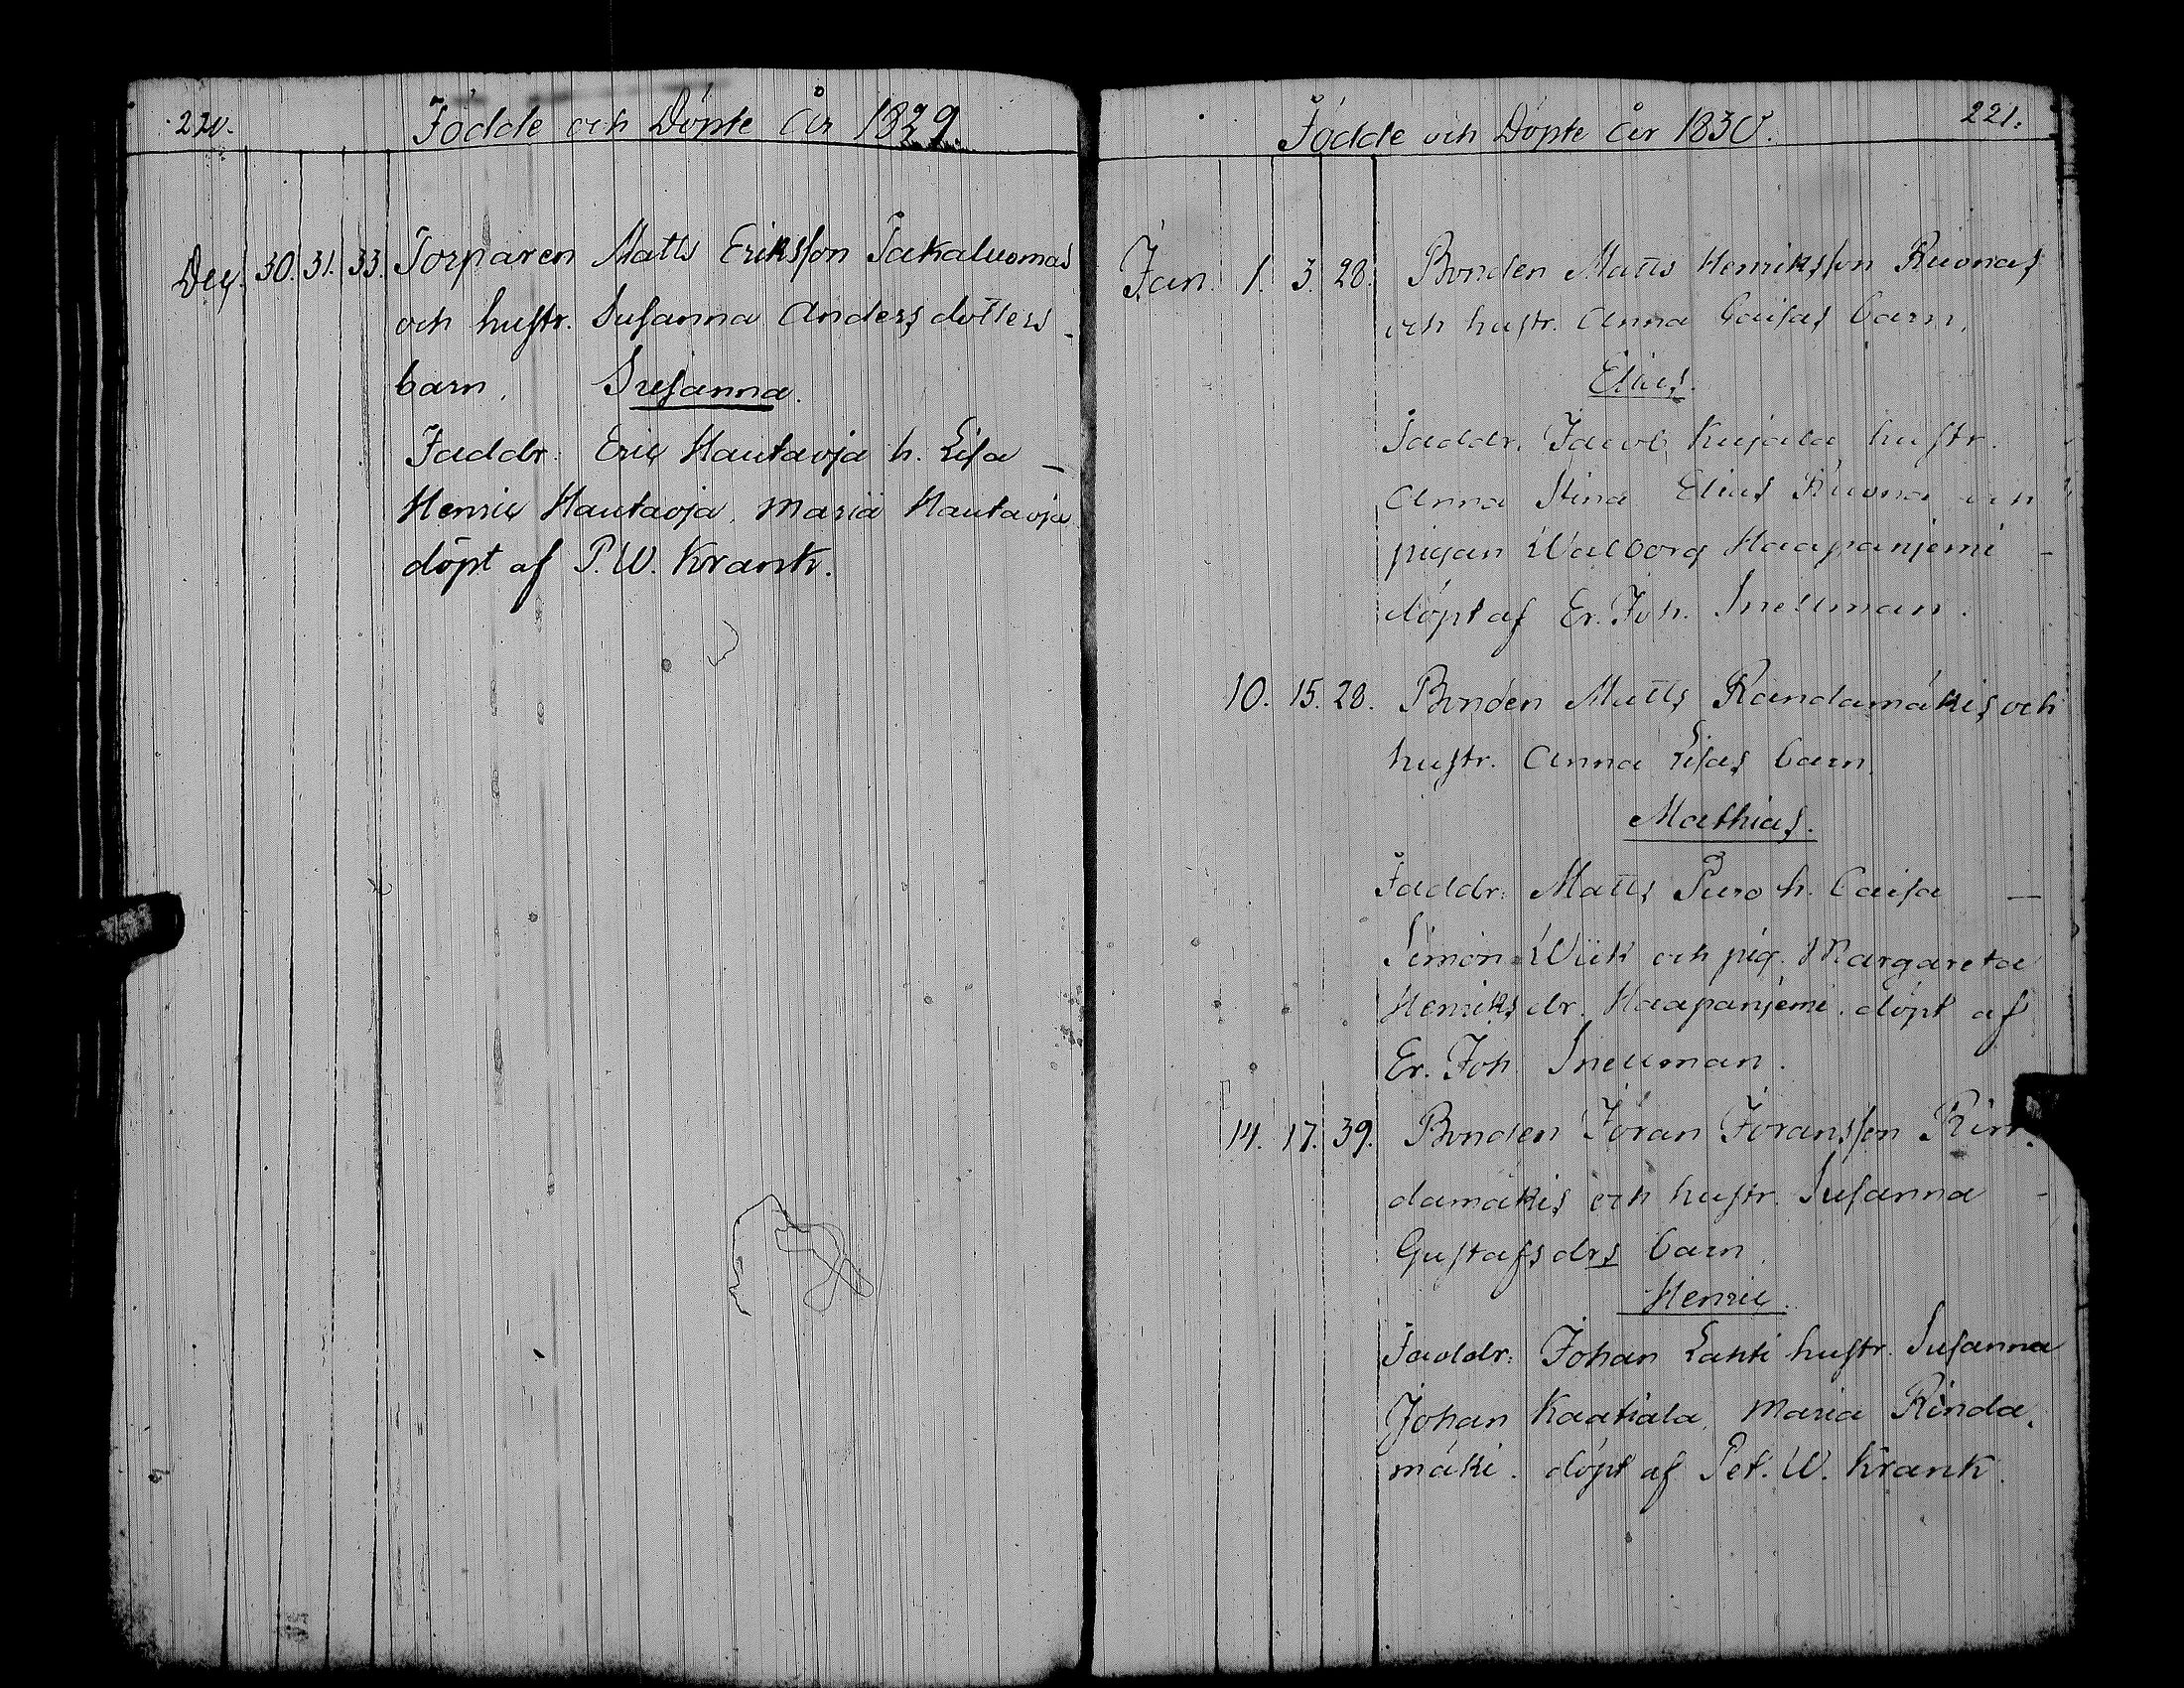 220.
Födde och Döpte År 1829.
Dec. 30. 31. 33. Torparen Matts Eriksson Takaluomas
och hustr. Susanna Anders dotters
barn, Susanna.
Faddr: Eric Hautaoja h. Lisa –
Henric Hautaoja, Maria Hautaoja
döpt af P. W. Krank.
221.
Födde och Döpte År 1830.
Jan. 1. 3. 28. Bonden Matts Henriksson Ruonas
och hustr. Anna Caisas barn,
Elias.
Faddr. Jacob Kujala hustr.
Anna Stina Elias Ruona och
pigan Walborg Haapanjemi –
döpt af Er. Joh. Snellman.
10. 15. 28. Bonden Matts Randamäkis och
hustr. Anna Lisas barn.
Mathias.
Faddr: Matts Puro h. Caisa –
Simon Wiik och pig. Margareta
Henriks dr. Haapanjemi. döpt af
Er. Joh. Snellman.
14. 17. 39. Bonden Jöran Jöransson Rin-
damäkis och hustr. Susanna –
Gustafs drs barn.
Henric.
Faddr: Johan Lahti hustr. Susanna
Johan Kaatiala, Maria Rinda-
mäki. döpt af Pet. W. Krank.